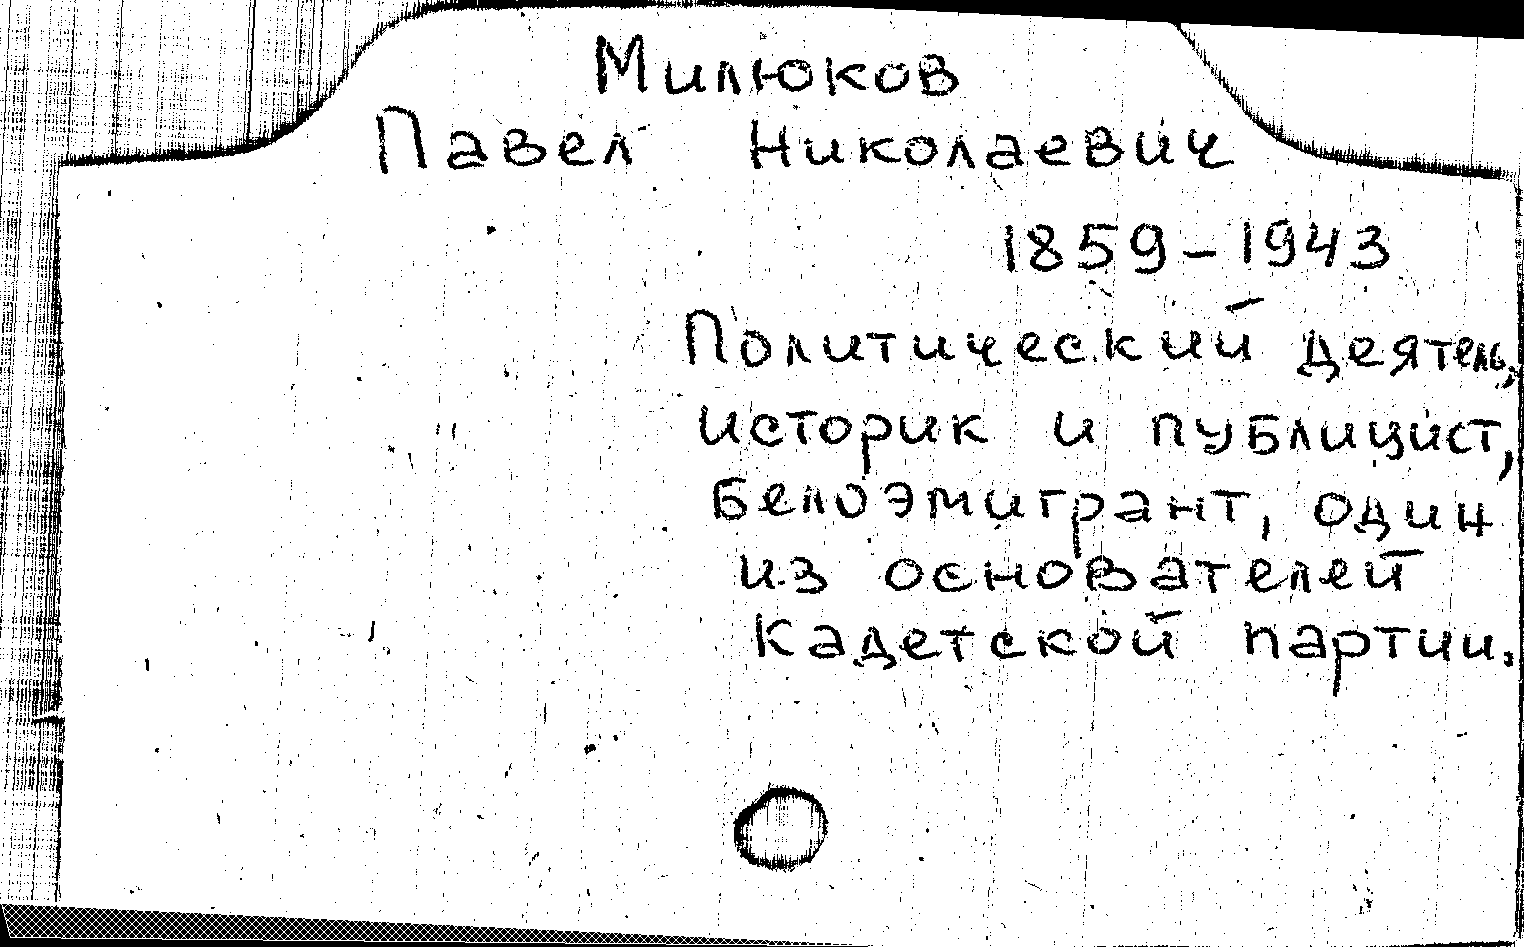 Милюков
Павел Николаевич
1859-1943
Политический деятель,
историк и публицист,
белоэмигрант, один
из основателей
кадетской партии.